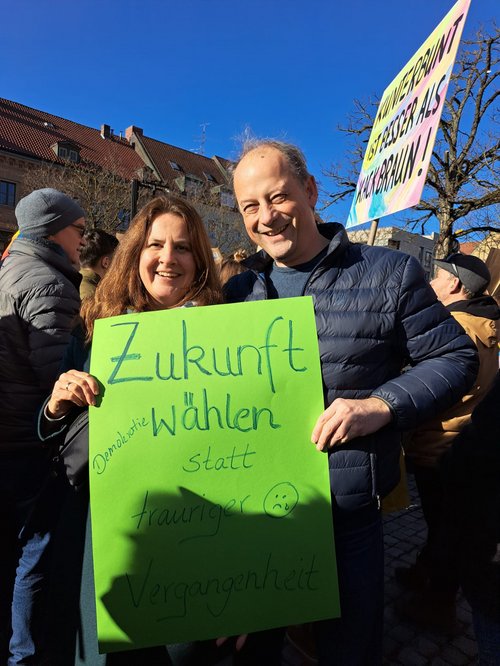 KUNTERBUNT
IST BESSER ALS
KACKBRAUN!
Zukunft
Demokratie wählen
statt
trauriger
Vergangenheit